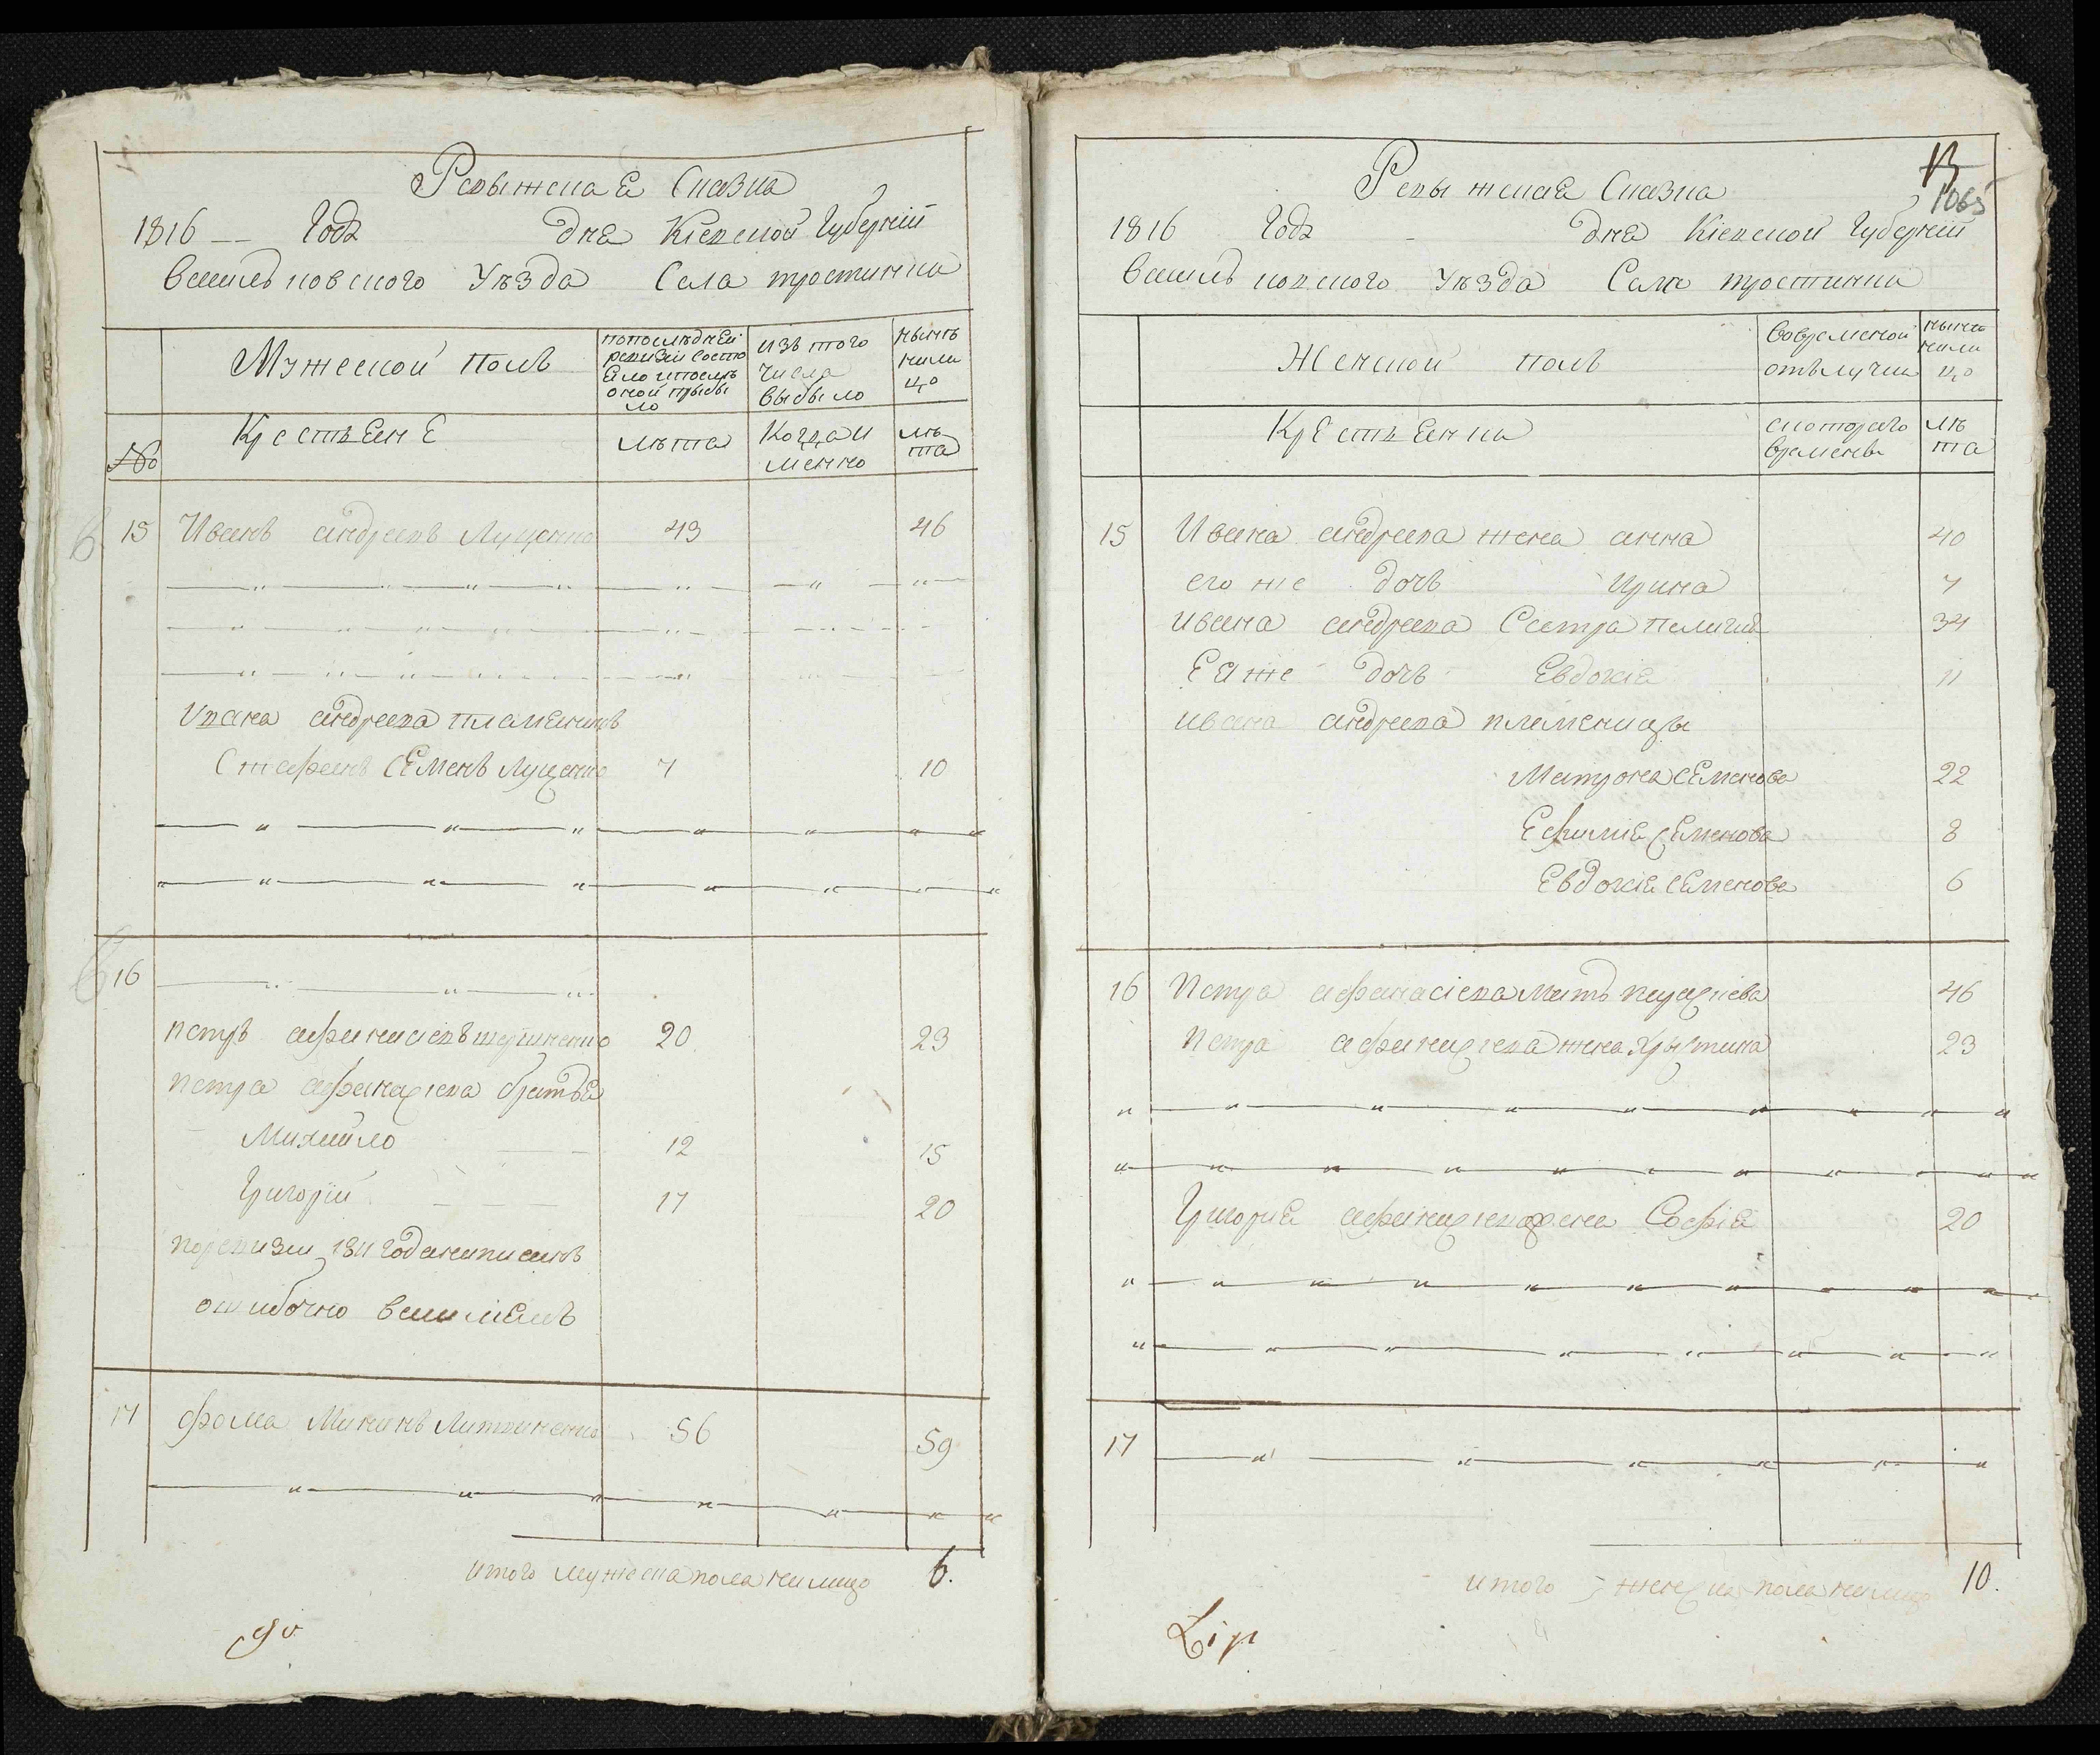 Ревыжеская Сказка
1816 — Года дня Кіевской Губерніи
Васильковского Уѣзда Села тростинки
Мужеской полъ
попослѣдней
ревизіи состо
Ело ипослѣ
оной прыбы
ло
изъ того
числа
выбыло
нынѣ
нали
цо
№
Крестьяне
лѣта
Когда и
менно
лѣ
та
15 Иванъ андреевъ Луценко 43 46
Ивана андреева племенникъ
Стефанъ Семенъ Луценко 7 10
16
петръ афанасіевъ 20 23
петра афанасіева братья
Михайло 12 15
Григорій 17 20
поревизіи 1811 года написанъ
ошибочно
17 фома Мининъ Литвиненко 56 59
итого мужеска пола налицо 6.
13
1065
Ревыжеская Сказка
1816 Года дня Кіевской Губерніи
Васильковского Уѣзда Села тростинки
Женской полъ
вовременной
отълучки
нынѣ
нали
цо
Крестьянки
скоторого
времены
лѣ
та
15 Ивана андреева жена анна 40
его же дочь Ирина 7
ивана андреева Сестра пелагия 34
Еяже дочь Евдокія 11
ивана андреева племеницы
Матрона Семенова 22
Ефимія Семенова 8
Евдокія Семенова 6
16 Петра афанасіева мать 46
Петра афанасіева жена Хрыстина 23
Григория афанасіева жена Софія 20
17
итого женска пола налицо 10.